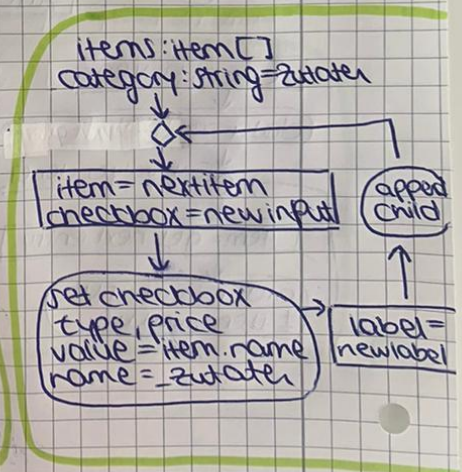 items:item[]
category:string=zutaten
item=nextitem
checkbox=newinput
set checkbox
type, price
value=item.name
name=_zutaten
label=
newlabel
apped
child